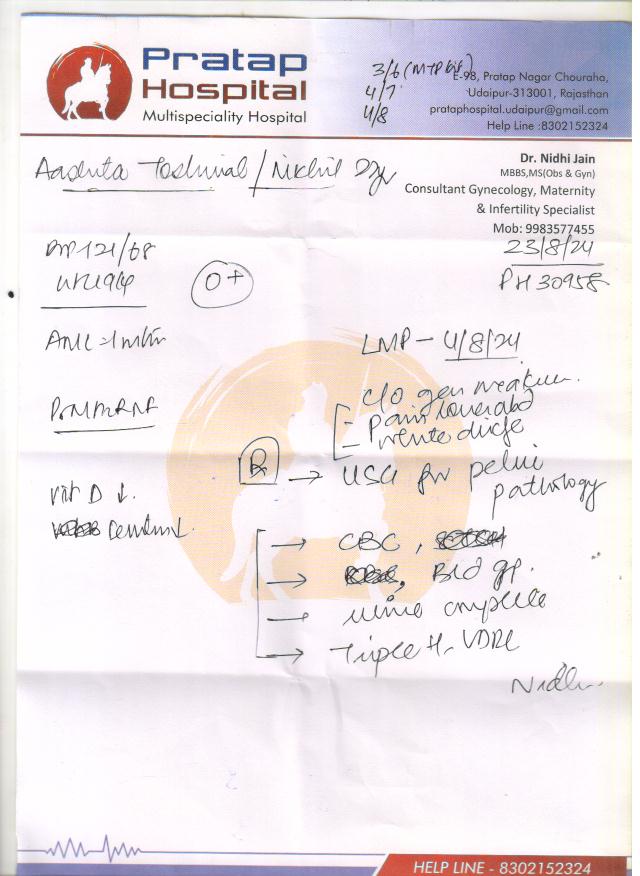 Pratap
Hospital
Multispeciality Hospital
3/6 (MTP Kit)
4/7
4/8
E-98, Pratap Nagar Chouraha,
Udaipur-313001, Rajasthan
prataphospital.udaipur@gmail.com
Help Line :8302152324
/ Nikhil
Dr. Nidhi Jain
MBBS,MS(Obs & Gyn)
Consultant Gynecology, Maternity
& Infertility Specialist
Mob: 9983577455
23/8/24
PH 30958
121/68
O+
LMP - 4/8/24
c/o gen
- Pain lower abd
- white
R → USG for pelvic
pathology
Vit D ↓
→ CBC,
→ Bld gp.
→ urine complete
→ Triple H, VDRL
Nidhi
HELP LINE - 8302152324